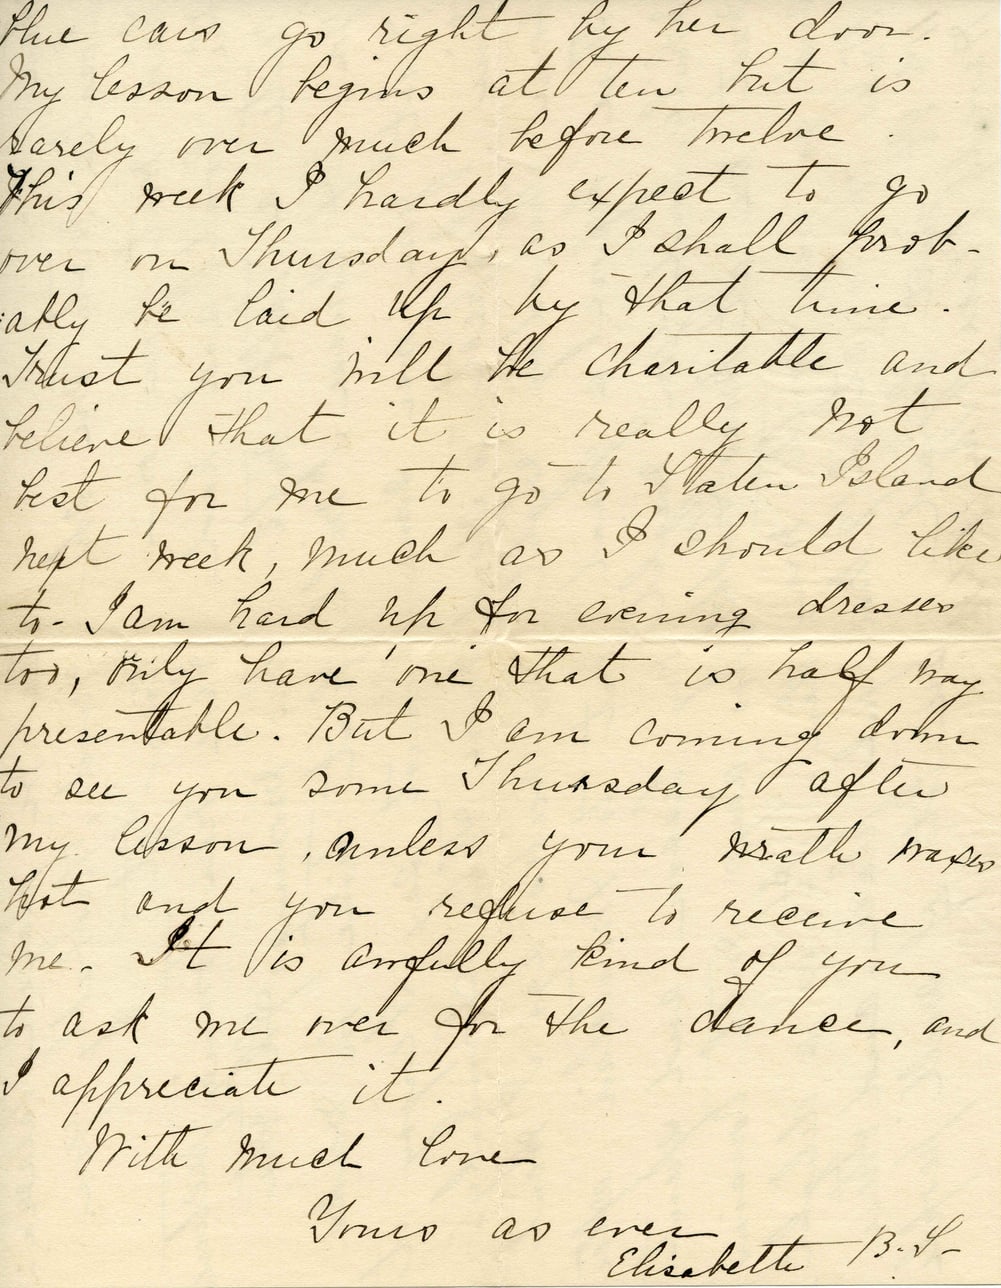 blue cars go right by her door.
My lesson begins at ten but is
rarely over much before twelve.
This week I hardly expect to go
over on Thursday, as I shall prob-
:ably be laid up by that time.
Trust you will be charitable and
believe that it is really not
best for me to go to Staten Island
next week, much as I should like
to - I am hard up for evening dresses
too, only have one that is half way
presentable. But I am coming down
to see you some Thursday after
my lesson, unless your wrath waxes
hot and you refuse to receive
me. It is awfully kind of you
to ask me over for the dance, and
I appreciate it.
With much love
Yours as ever
Elisabeth B. S-